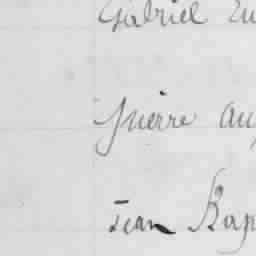 Gabriel Eu
pierre au
Jean Bap